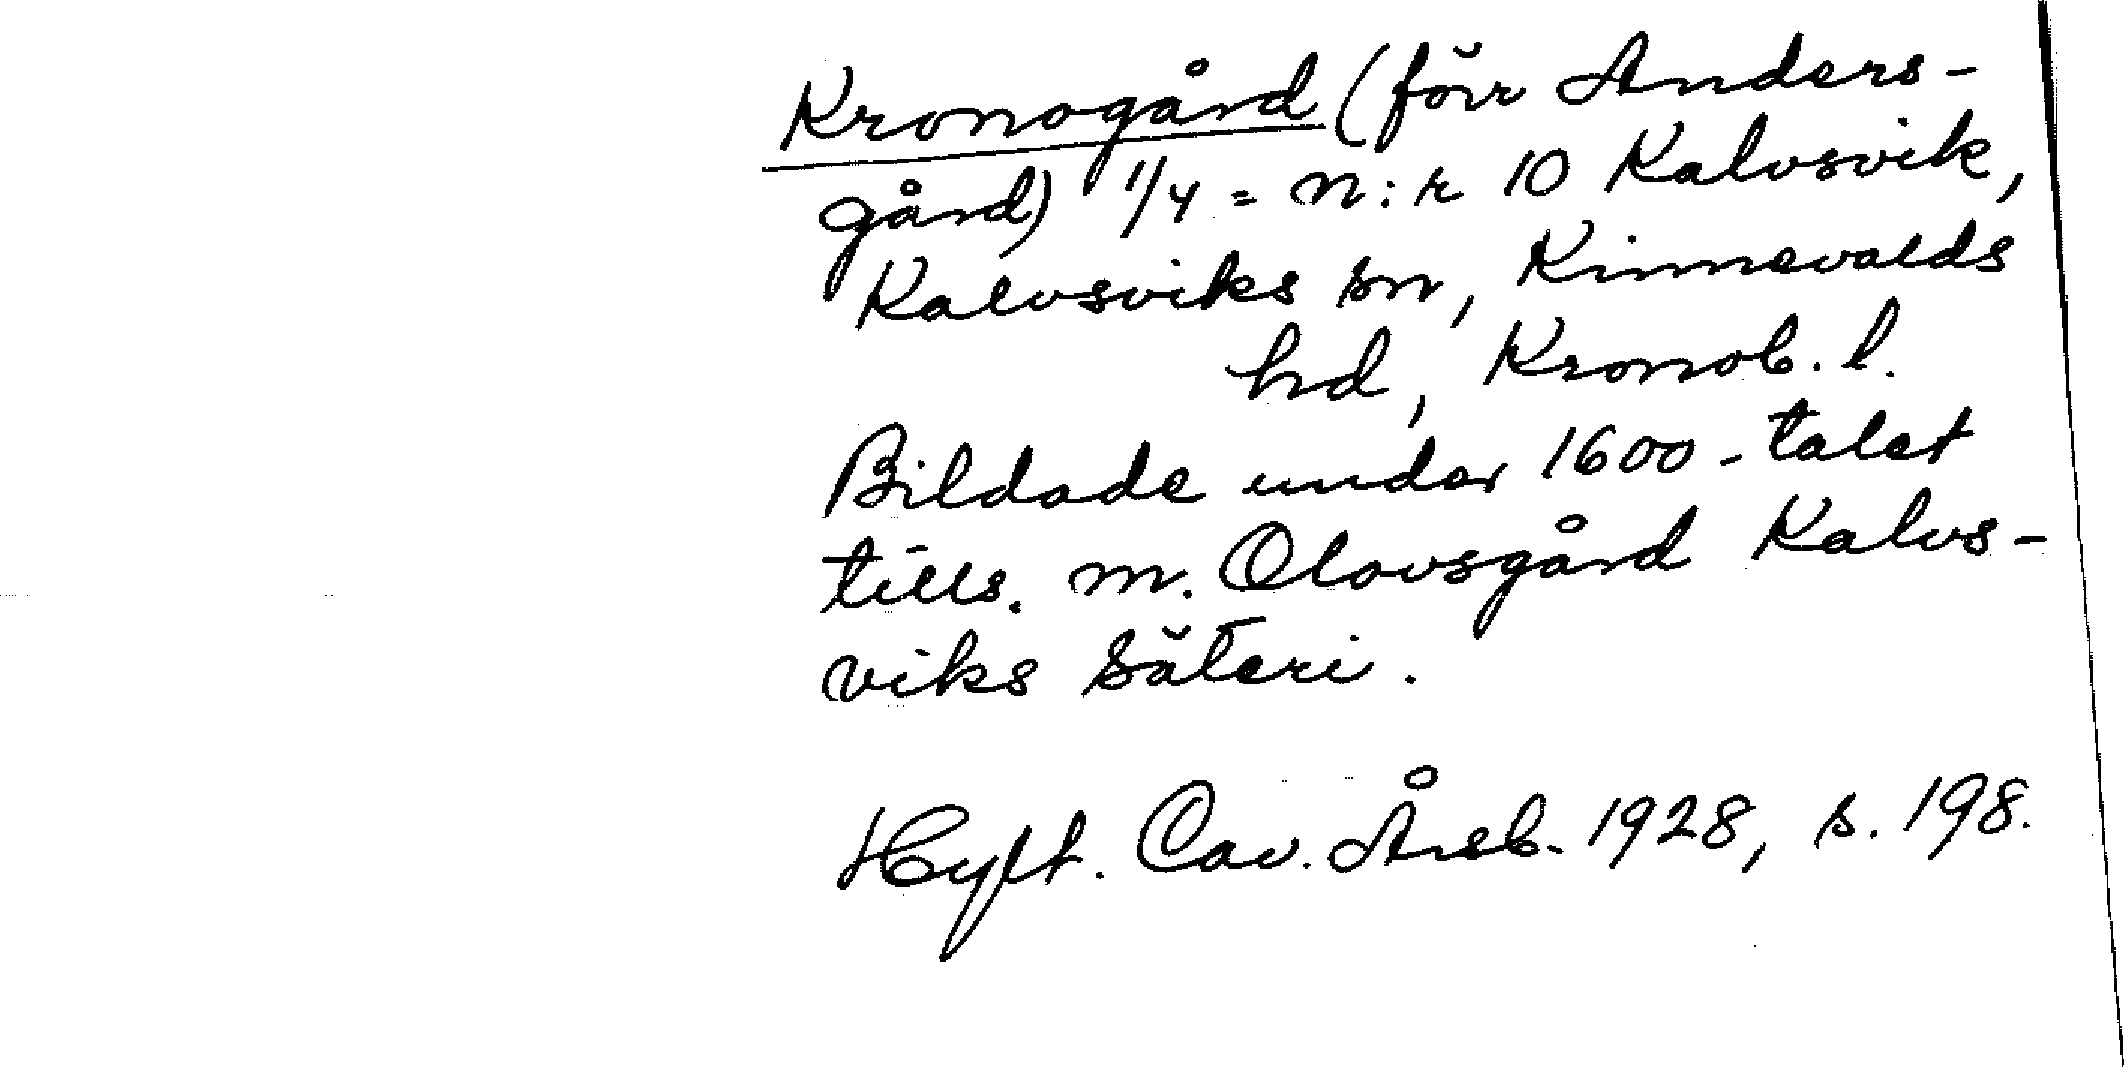 Kronogård (förr Anders-
gård) 1/4 = n:r 10 Kalvsvik,
Kalvsviks sn, Kinnevalds
hd, Kronob. l.
Bildade under 1600-talet
tills. m. Olovsgård Kalvs-
viks säteri.
Hylt. Cav. Årsb. 1928, s. 198.